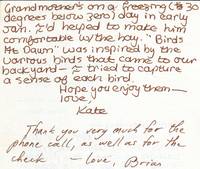 Grandmother's on a freezing (-30
degrees below zero) day in early
Jan. I'd helped to make him
comfortable w/ the hay. "Birds
At Dawn" was inspired by the
various birds that came to our
backyard — I tried to capture
a sense of each bird.
Hope you enjoy them—
love,
Kate
Thank you very much for the
phone call, as well as for the
check — love, Brian